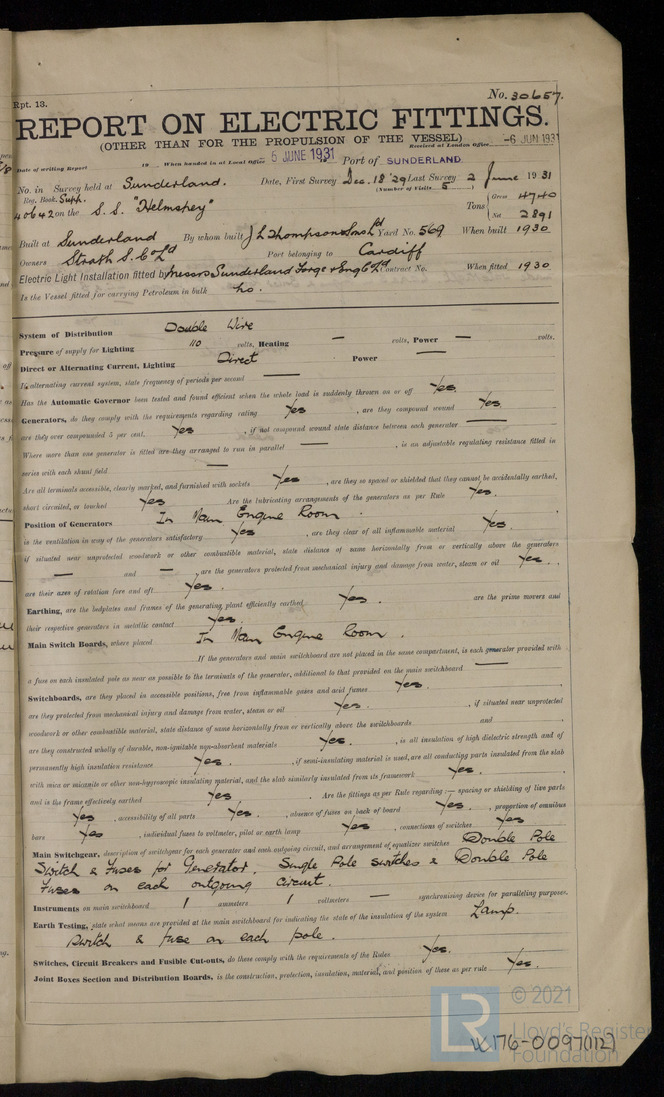 Rpt. 13.
No. 30657.
REPORT ON ELECTRIC FITTINGS.
(OTHER THAN FOR THE PROPULSION OF THE VESSEL)
Received at London Office -6 JUN 1931
Date of writing Report 19 When handed in at Local Office 6 JUNE 1931 Port of SUNDERLAND
No. in Survey held at Sunderland. Date, First Survey Dec. 18 '29 Last Survey 2 June 1931
Reg. Book. Supp. (Number of Visits 5)
40642 on the S.S. "Helmspey" Tons { Gross 4740
Net 2891
Built at Sunderland By whom built J L Thompson & Sons Ld Yard No. 569 When built 1930
Owners Strath S. Co Ld Port belonging to Cardiff
Electric Light Installation fitted by Messrs Sunderland Forge & Eng Co Ld Contract No. When fitted 1930
Is the Vessel fitted for carrying Petroleum in bulk no.
System of Distribution Double Wire
Pressure of supply for Lighting 110 volts, Heating — volts, Power — volts.
Direct or Alternating Current, Lighting Direct Power —
If alternating current system, state frequency of periods per second —
Has the Automatic Governor been tested and found efficient when the whole load is suddenly thrown on or off Yes
Generators, do they comply with the requirements regarding rating Yes, are they compound wound Yes.
are they over compounded 5 per cent. Yes, if not compound wound state distance between each generator —
Where more than one generator is fitted are they arranged to run in parallel —, is an adjustable regulating resistance fitted in
series with each shunt field —
Are all terminals accessible, clearly marked, and furnished with sockets Yes, are they so spaced or shielded that they cannot be accidentally earthed,
short circuited, or touched Yes Are the lubricating arrangements of the generators as per Rule Yes.
Position of Generators In Main Engine Room.
is the ventilation in way of the generators satisfactory Yes, are they clear of all inflammable material Yes.
if situated near unprotected woodwork or other combustible material, state distance of same horizontally from or vertically above the generators
— and —, are the generators protected from mechanical injury and damage from water, steam or oil Yes.,
are their axes of rotation fore and aft Yes.
Earthing, are the bedplates and frames of the generating plant efficiently earthed Yes. are the prime movers and
their respective generators in metallic contact Yes.
Main Switch Boards, where placed In Main Engine Room.
If the generators and main switchboard are not placed in the same compartment, is each generator provided with
a fuse on each insulated pole as near as possible to the terminals of the generator, additional to that provided on the main switchboard —
Switchboards, are they placed in accessible positions, free from inflammable gases and acid fumes Yes.
are they protected from mechanical injury and damage from water, steam or oil Yes., if situated near unprotected
woodwork or other combustible material, state distance of same horizontally from or vertically above the switchboards and ,
are they constructed wholly of durable, non-ignitable non-absorbent materials Yes., is all insulation of high dielectric strength and of
permanently high insulation resistance Yes., if semi-insulating material is used, are all conducting parts insulated from the slab
with mica or micanite or other non-hygroscopic insulating material, and the slab similarly insulated from its framework Yes.,
and is the frame effectively earthed Yes. Are the fittings as per Rule regarding:— spacing or shielding of live parts
Yes., accessibility of all parts Yes., absence of fuses on back of board Yes., proportion of omnibus
bars Yes, individual fuses to voltmeter, pilot or earth lamp Yes, connections of switches Yes
Main Switchgear, description of switchgear for each generator and each outgoing circuit, and arrangement of equalizer switches Double Pole
Switch & Fuses for Generator. Single Pole switches & Double Pole
Fuses on each outgoing circuit.
Instruments on main switchboard 1 ammeters 1 voltmeters — synchronising device for paralleling purposes.
Earth Testing, state what means are provided at the main switchboard for indicating the state of the insulation of the system Lamp.
Switch & fuse on each pole.
Switches, Circuit Breakers and Fusible Cut-outs, do these comply with the requirements of the Rules Yes.
Joint Boxes Section and Distribution Boards, is the construction, protection, insulation, material, and position of these as per rule Yes.
© 2021
LR
Lloyd's Register
Foundation
W176-0097(1/2)